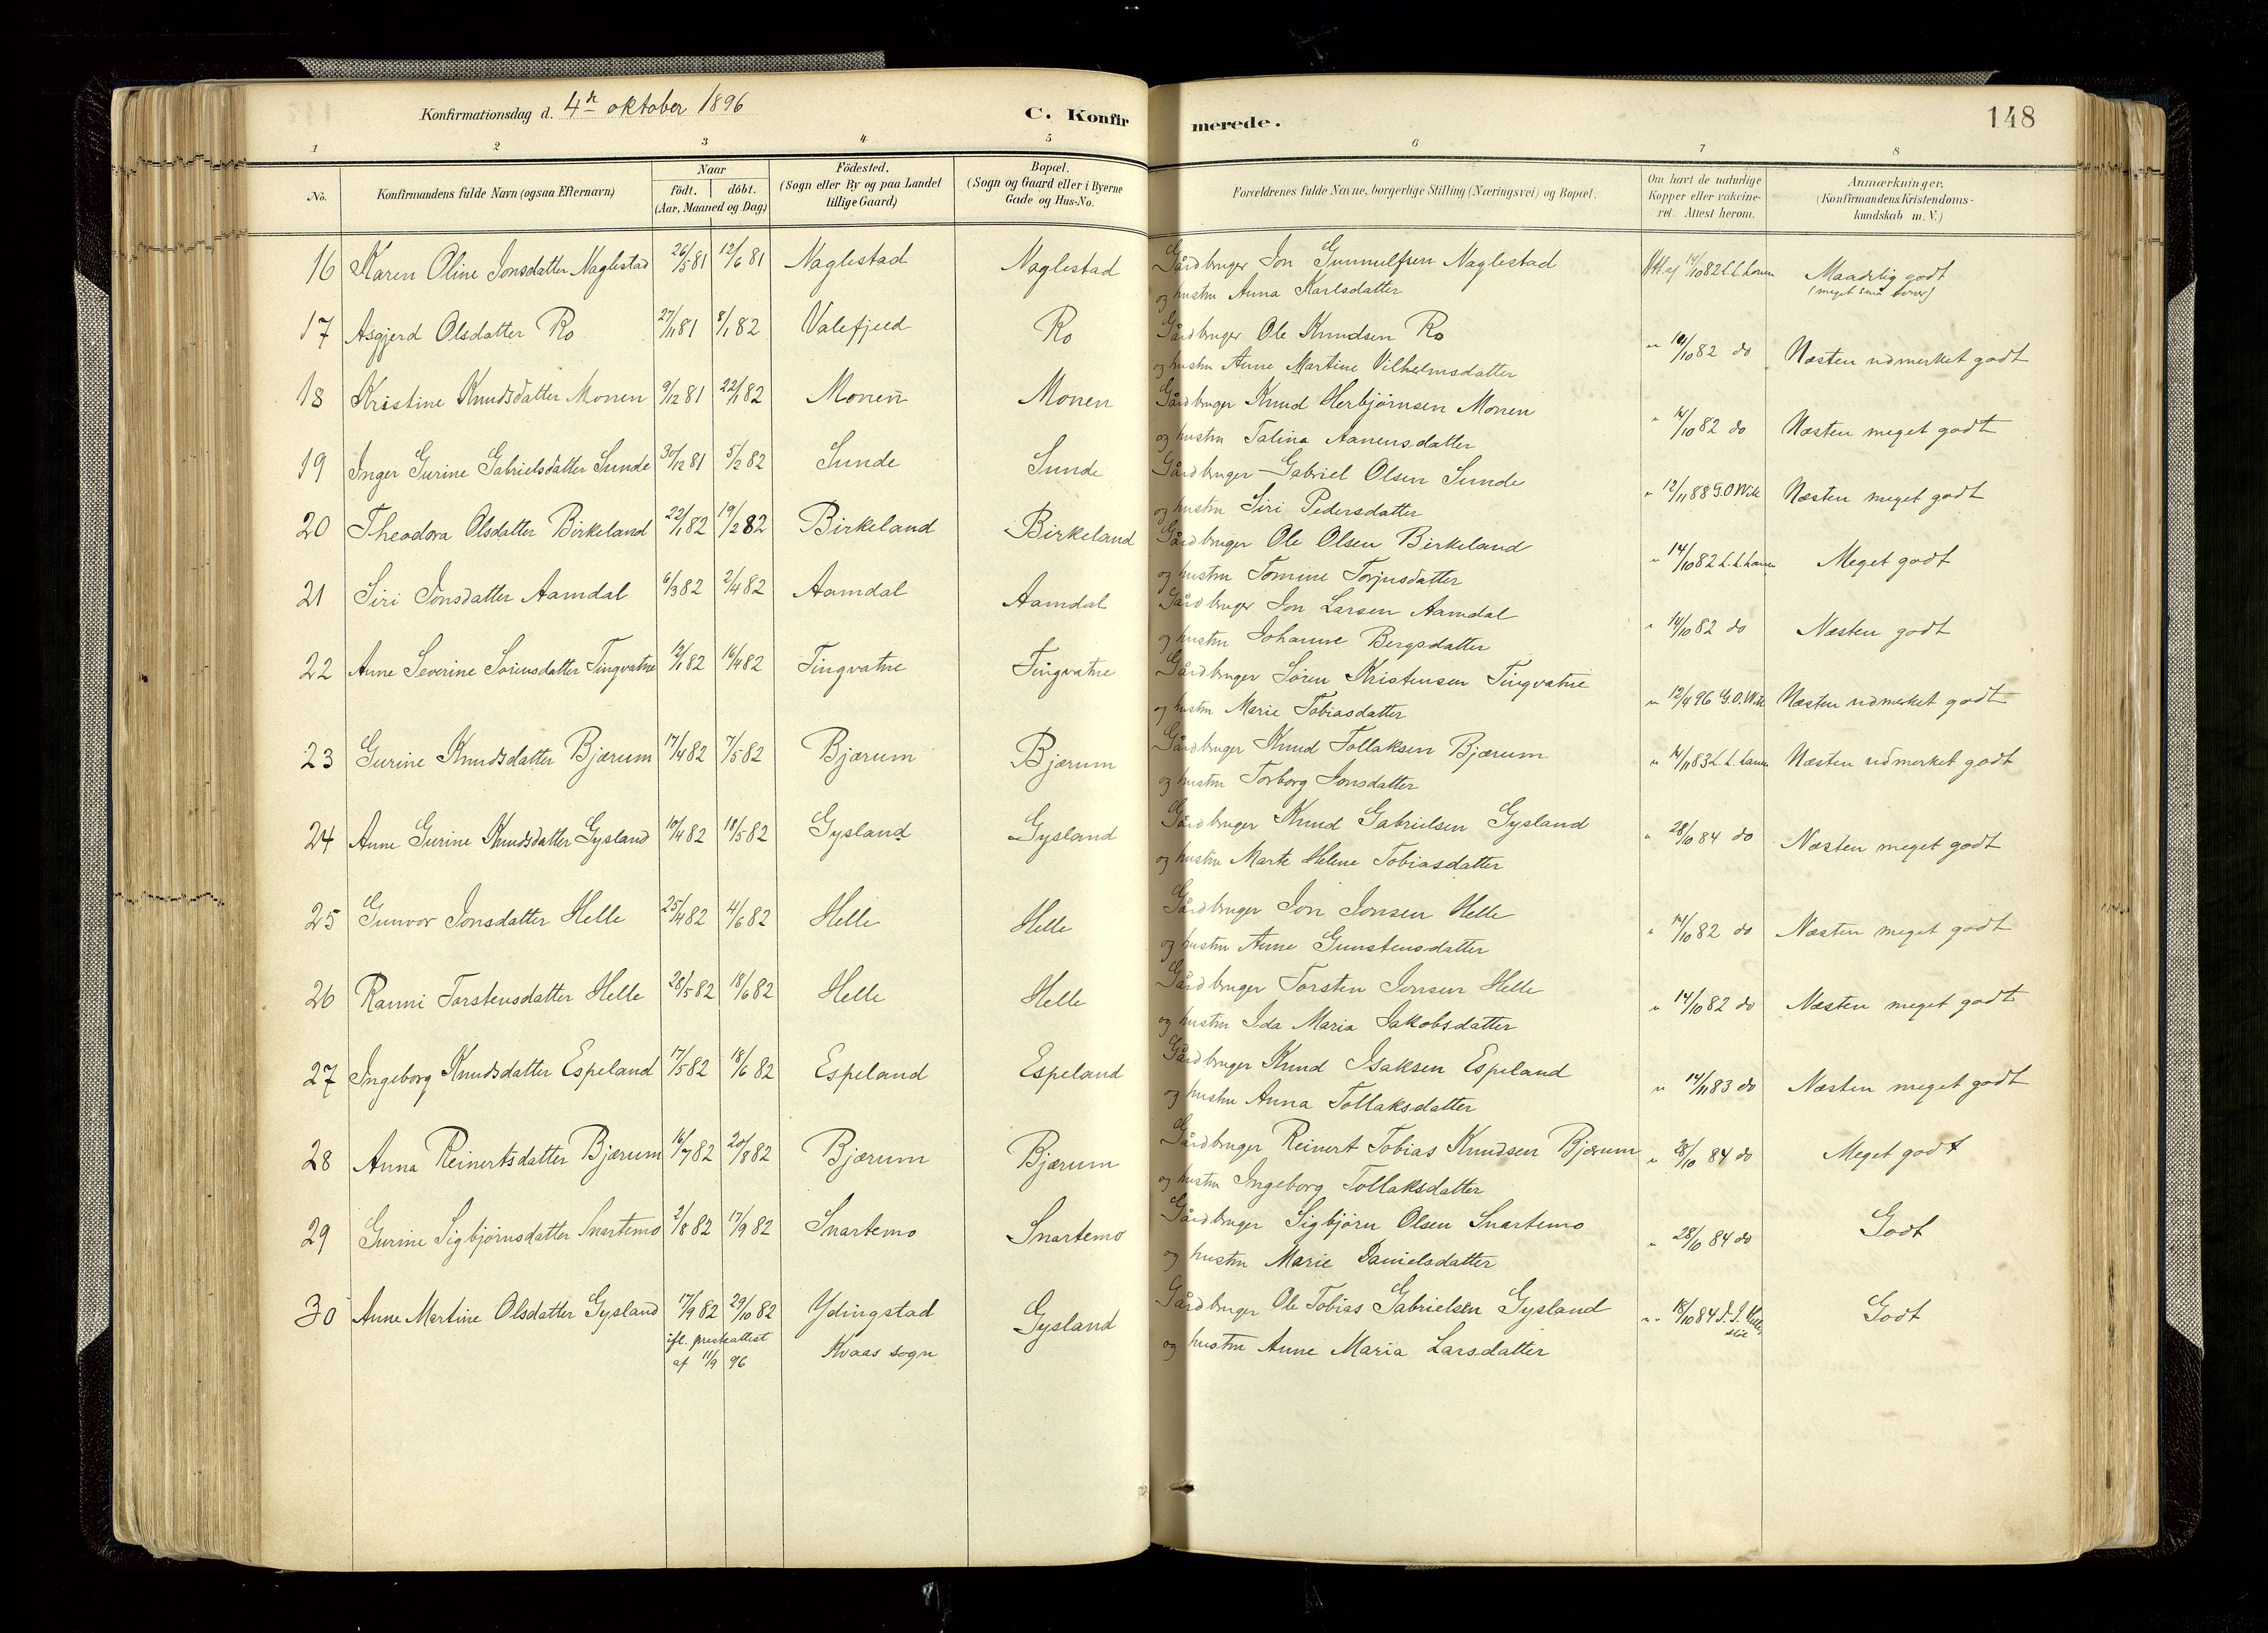 Konfirmationsdag d. 4de oktober 1896
C. Konfirmerede.
148
1 2 3 4 5 6 7 8
No.
Konfirmandens fulde Navn (ogsaa Efternavn)
Naar
födt. döbt.
(Aar, Maaned og Dag)
Födested.
(Sogn eller By og paa Landet
tillige Gaard)
Bopæl.
(Sogn og Gaard eller i Byerne
Gade og Hus-No.
Forældrenes fulde Navne, borgerlige Stilling (Næringsvei) og Bopæl.
Om havt de naturlige
Kopper eller vakcine-
ret. Attest herom.
Anmærkninger,
(Konfirmandens Kristendoms-
kundskab m. V.)
16 Karen Oline Jonsdatter Naglestad 26/5 81 12/6 81 Naglestad Naglestad Gårdbruger Jon Gunnulfsen Naglestad Att. af 14/10 82 Maadelig godt
og hustru Anna Karlsdatter (meget små evner)
17 Asgjerd Olsdatter Ro 27/11 81 8/1 82 Valefjeld Ro Gårdbruger Ole Knudsen Ro " 14/10 82 do Næsten udmerket godt
og hustru Anne Martine Vilhelmsdatter
18 Kristine Knudsdatter Monen 9/12 81 22/1 82 Monen Monen Gårdbruger Knud Herbjørnsen Monen " 14/10 82 do Næsten meget godt
og hustru Talina Aanensdatter
19 Inger Gurine Gabrielsdatter Sunde 30/12 81 5/2 82 Sunde Sunde Gårdbruger Gabriel Olsen Sunde " 12/11 88 G.O. Næsten meget godt
og hustru Siri Pedersdatter
20 Theodora Olsdatter Birkeland 22/1 82 19/2 82 Birkeland Birkeland Gårdbruger Ole Olsen Birkeland " 14/10 82 Meget godt
og hustru Tomine Torjusdatter
21 Siri Jonsdatter Aamdal 6/3 82 2/4 82 Aamdal Aamdal Gårdbruger Jon Larsen Aamdal " 14/10 82 do Næsten godt
og hustru Johanne Bergsdatter
22 Anne Severine Sørensdatter Tingvatne 12/1 82 16/4 82 Tingvatne Tingvatne Gårdbruger Søren Kristensen Tingvatne " 12/4 96 G.O. Næsten udmerket godt
og hustru Marie Tobiasdatter
23 Gurine Knudsdatter Bjærum 17/4 82 7/5 82 Bjærum Bjærum Gårdbruger Knud Tollaksen Bjærum " 14/11 83 Næsten udmerket godt
og hustru Torborg Jonsdatter
24 Anne Gurine Knudsdatter Gysland 10/4 82 18/5 82 Gysland Gysland Gårdbruger Knud Gabrielsen Gysland " 28/10 84 do Næsten meget godt
og hustru Marte Helene Tobiasdatter
25 Gunvor Jonsdatter Helle 25/4 82 4/6 82 Helle Helle Gårdbruger Jon Jonsen Helle " 14/10 82 do Næsten meget godt
og hustru Anne Gunstensdatter
26 Ranni Torstensdatter Helle 28/5 82 18/6 82 Helle Helle Gårdbruger Torsten Jonsen Helle " 14/10 82 do Næsten meget godt
og hustru Ida Maria Jakobsdatter
27 Ingeborg Knudsdatter Espeland 17/5 82 18/6 82 Espeland Espeland Gårdbruger Knud Isaksen Espeland " 14/11 83 do Næsten meget godt
og hustru Anna Tollaksdatter
28 Anna Reinertsdatter Bjærum 16/7 82 20/8 82 Bjærum Bjærum Gårdbruger Reinert Tobias Knudsen Bjærum " 28/10 84 do Meget godt
og hustru Ingeborg Tollaksdatter
29 Gurine Sigbjørnsdatter Snartemo 2/8 82 17/9 82 Snartemo Snartemo Gårdbruger Sigbjørn Olsen Snartemo " 28/10 84 do Godt
og hustru Marie Danielsdatter
30 Anne Martine Olsdatter Gysland 17/9 82 29/10 82 Ydingstad Gysland Gårdbruger Ole Tobias Gabrielsen Gysland " 18/10 84 Godt
ifl. presteattest Kvaas sogn og hustru Anne Maria Larsdatter
af 11/9 96